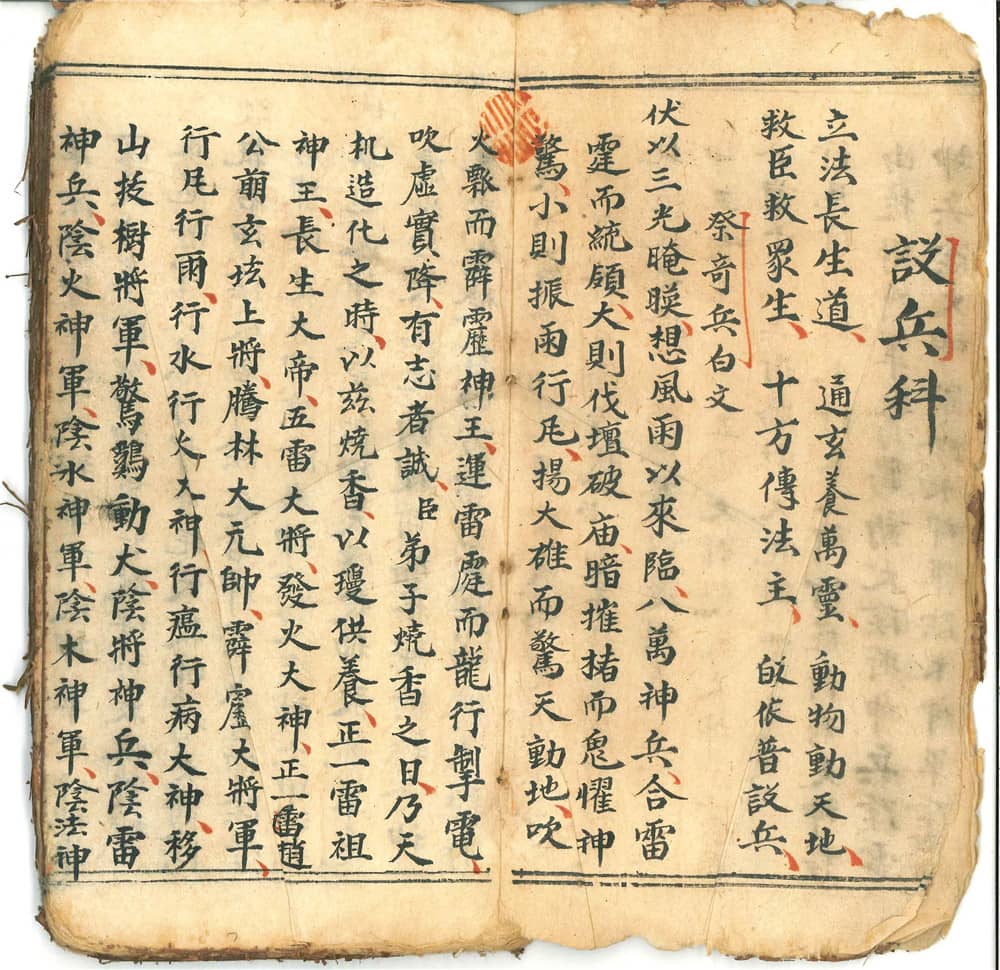 設兵科
立法長生道、通玄養萬靈、動物動天地、
救臣救眾生、十方傳法主、皈依普設兵、
祭奇兵白文
伏以三光晻暎、想風雨以來臨、八萬神兵、合雷
霆而統領、大則伐壇破庙、暗摧捨而鬼懼神
驚、小則振雨行風、揚大碓而驚天動地、吹
火飄而霹靂神王、運雷霆而龍行掣電、
吹虛實降、有志者誠、臣弟子燒香之日、乃天
机造化之時、以茲燒香、以瓊供養、正一雷祖
神王、長生大帝、五雷大將、發火大神、正一雷趙
公萌玄坛上將、騰林大元帥、霹靂大將軍、
行風行雨、行水行火大神、行瘟行病大神、移
山拔樹將軍、驚鷄動犬、陰將神兵、陰雷
神兵、陰火神軍、陰水神軍、陰木神軍、陰法神